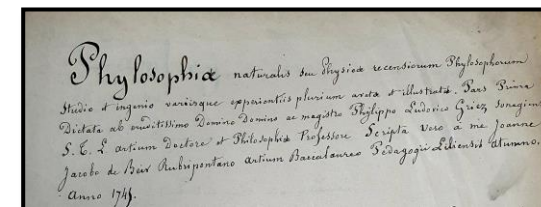 Phylosophiæ naturalis seu Physicæ recensiorum Phylosophorum
Studio et ingenio variisque experientiis plurium aucta et illustrata. Pars Prima
Dictata ab eruditissimo Domino Domino ac magistro Phylippo Ludovico
S. T. L. artium Doctore et Philosophiæ Professore Scripta vero a me Joanne
Jacobo de Beir Rubripontano artium Baccalaureo Pedagogii Liliensis Alumno.
Anno